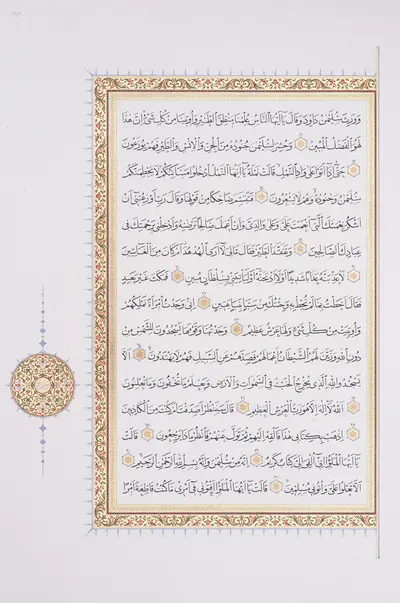 وَوَرِثَ سُلَيْمٰنُ دَاوُدَ وَقَالَ يَا اَيُّهَا النَّاسُ عُلِّمْنَا مَنْطِقَ الطَّيْرِ وَاُوتِينَا مِنْ كُلِّ شَيْءٍ اِنَّ هٰذَا
لَهُوَ الْفَضْلُ الْمُبِينُ وَحُشِرَ لِسُلَيْمٰنَ جُنُودُهُ مِنَ الْجِنِّ وَالْاِنْسِ وَالطَّيْرِ فَهُمْ يُوزَعُونَ
حَتّٰى اِذَا اَتَوْا عَلٰى وَادِ النَّمْلِ قَالَتْ نَمْلَةٌ يَا اَيُّهَا النَّمْلُ ادْخُلُوا مَسَاكِنَكُمْ لَا يَحْطِمَنَّكُمْ
سُلَيْمٰنُ وَجُنُودُهُ وَهُمْ لَا يَشْعُرُونَ فَتَبَسَّمَ ضَاحِكًا مِنْ قَوْلِهَا وَقَالَ رَبِّ اَوْزِعْنِي اَنْ
اَشْكُرَ نِعْمَتَكَ الَّتِي اَنْعَمْتَ عَلَيَّ وَعَلٰى وَالِدَيَّ وَاَنْ اَعْمَلَ صَالِحًا تَرْضٰيهُ وَاَدْخِلْنِي بِرَحْمَتِكَ فِي
عِبَادِكَ الصَّالِحِينَ وَتَفَقَّدَ الطَّيْرَ فَقَالَ مَالِيَ لَا اَرَى الْهُدْهُدَ اَمْ كَانَ مِنَ الْغَائِبِينَ
لَاُعَذِّبَنَّهُ عَذَابًا شَدِيدًا اَوْ لَاَاذْبَحَنَّهُ اَوْ لَيَاْتِيَنِّي بِسُلْطَانٍ مُبِينٍ فَمَكَثَ غَيْرَ بَعِيدٍ
فَقَالَ اَحَطْتُ بِمَا لَمْ تُحِطْ بِهِ وَجِئْتُكَ مِنْ سَبَاٍ بِنَبَاٍ يَقِينٍ اِنِّي وَجَدْتُ امْرَاَةً تَمْلِكُهُمْ
وَاُوتِيَتْ مِنْ كُلِّ شَيْءٍ وَلَهَا عَرْشٌ عَظِيمٌ وَجَدْتُهَا وَقَوْمَهَا يَسْجُدُونَ لِلشَّمْسِ مِنْ
دُونِ اللّٰهِ وَزَيَّنَ لَهُمُ الشَّيْطَانُ اَعْمَالَهُمْ فَصَدَّهُمْ عَنِ السَّبِيلِ فَهُمْ لَا يَهْتَدُونَ اَلَّا
يَسْجُدُوا لِلّٰهِ الَّذِي يُخْرِجُ الْخَبْءَ فِي السَّمٰوَاتِ وَالْاَرْضِ وَيَعْلَمُ مَا تُخْفُونَ وَمَا تُعْلِنُونَ
اَللّٰهُ لَا اِلٰهَ اِلَّا هُوَ رَبُّ الْعَرْشِ الْعَظِيمِ قَالَ سَنَنْظُرُ اَصَدَقْتَ اَمْ كُنْتَ مِنَ الْكَاذِبِينَ
اِذْهَبْ بِكِتَابِي هٰذَا فَاَلْقِهْ اِلَيْهِمْ ثُمَّ تَوَلَّ عَنْهُمْ فَانْظُرْ مَاذَا يَرْجِعُونَ قَالَتْ
يَا اَيُّهَا الْمَلَؤُا اِنِّي اُلْقِيَ اِلَيَّ كِتَابٌ كَرِيمٌ اِنَّهُ مِنْ سُلَيْمٰنَ وَاِنَّهُ بِسْمِ اللّٰهِ الرَّحْمٰنِ الرَّحِيمِ
اَلَّا تَعْلُوا عَلَيَّ وَاْتُونِي مُسْلِمِينَ قَالَتْ يَا اَيُّهَا الْمَلَؤُا اَفْتُونِي فِي اَمْرِي مَا كُنْتُ قَاطِعَةً اَمْرًا